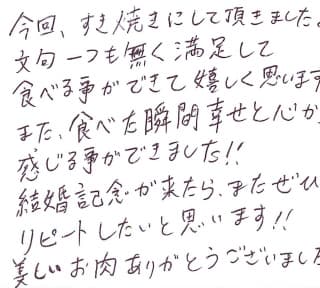 今回、すき焼きにして頂きました。
文句一つも無く満足して
食べる事ができて嬉しく思います
また、食べた瞬間幸せと心か
感じる事ができました!!
結婚記念が来たら、またぜひ
リピートしたいと思います!!
美しいお肉ありがとうございました